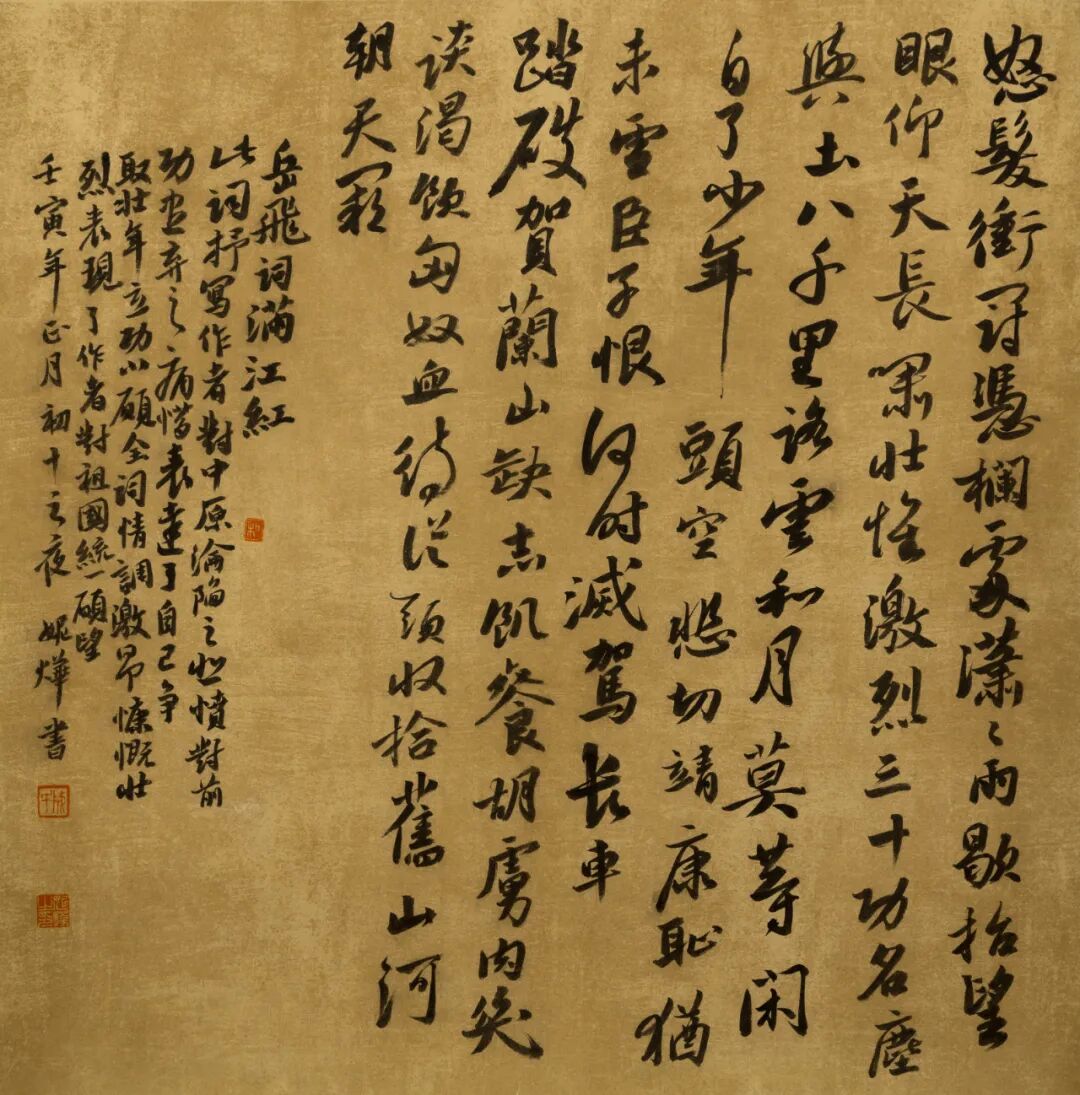 怒髮衝冠憑欄處瀟〻雨歇抬望
眼仰天長嘯壯懷激烈三十功名塵
與土八千里路雲和月莫等閑
白了少年頭空悲切靖康恥猶
未雪臣子恨何时滅駕長車
踏破賀蘭山缺志飢餐胡虜肉笑
談渴飲匈奴血待從頭收拾舊山河
朝天闕
岳飛詞滿江紅
此詞抒寫作者對中原淪陷之悲憤對前
功盡弃之痛惜表達了自己争
取壯年立功心願全詞情調激昂慷慨壯
烈表現了作者對祖國統一願望
壬寅年正月初十之夜 妮燁書